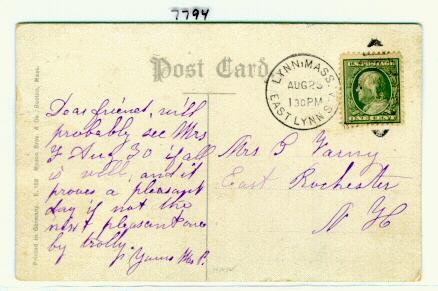 7794
Post Card
LYNN, MASS.
AUG 23
130 PM
EAST LYNN STA.
U.S. POSTAGE
ONE CENT
Printed in Germany. Mason Bros. & Co., Boston, Mass.
Dear friend, will
probably see Mrs
F Aug 30 if all
is well, and it
proves a pleasant
day if not the
next pleasant one
by trolly.
Yours Mrs P.
Mrs B
East Rochester
N H